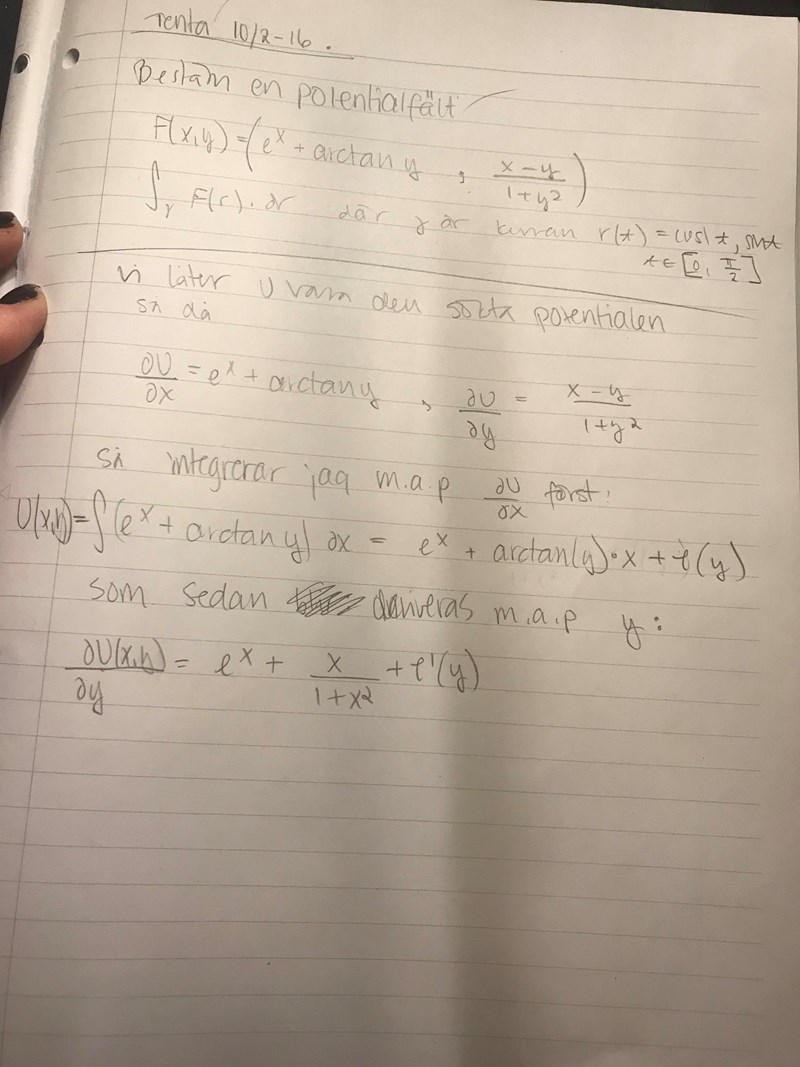 Tenta 10/2-16.
Bestäm en potentialfält
F(x,y) = (e^x + arctan y , x-y / 1+y^2)
∫_γ F(r)·dr där γ är kurvan r(t) = cos t, sin t
t ∈ [0, π/2]
vi låter U vara den sökta potentialen
så då
∂U/∂x = e^x + arctan y , ∂U/∂y = x-y / 1+y^2
så integrerar jag m.a.p ∂U/∂x först:
U(x,y) = ∫(e^x + arctan y) ∂x = e^x + arctan(y)·x + f(y)
som sedan deriveras m.a.p y:
∂U(x,y)/∂y = e^x + x / 1+x^2 + f'(y)